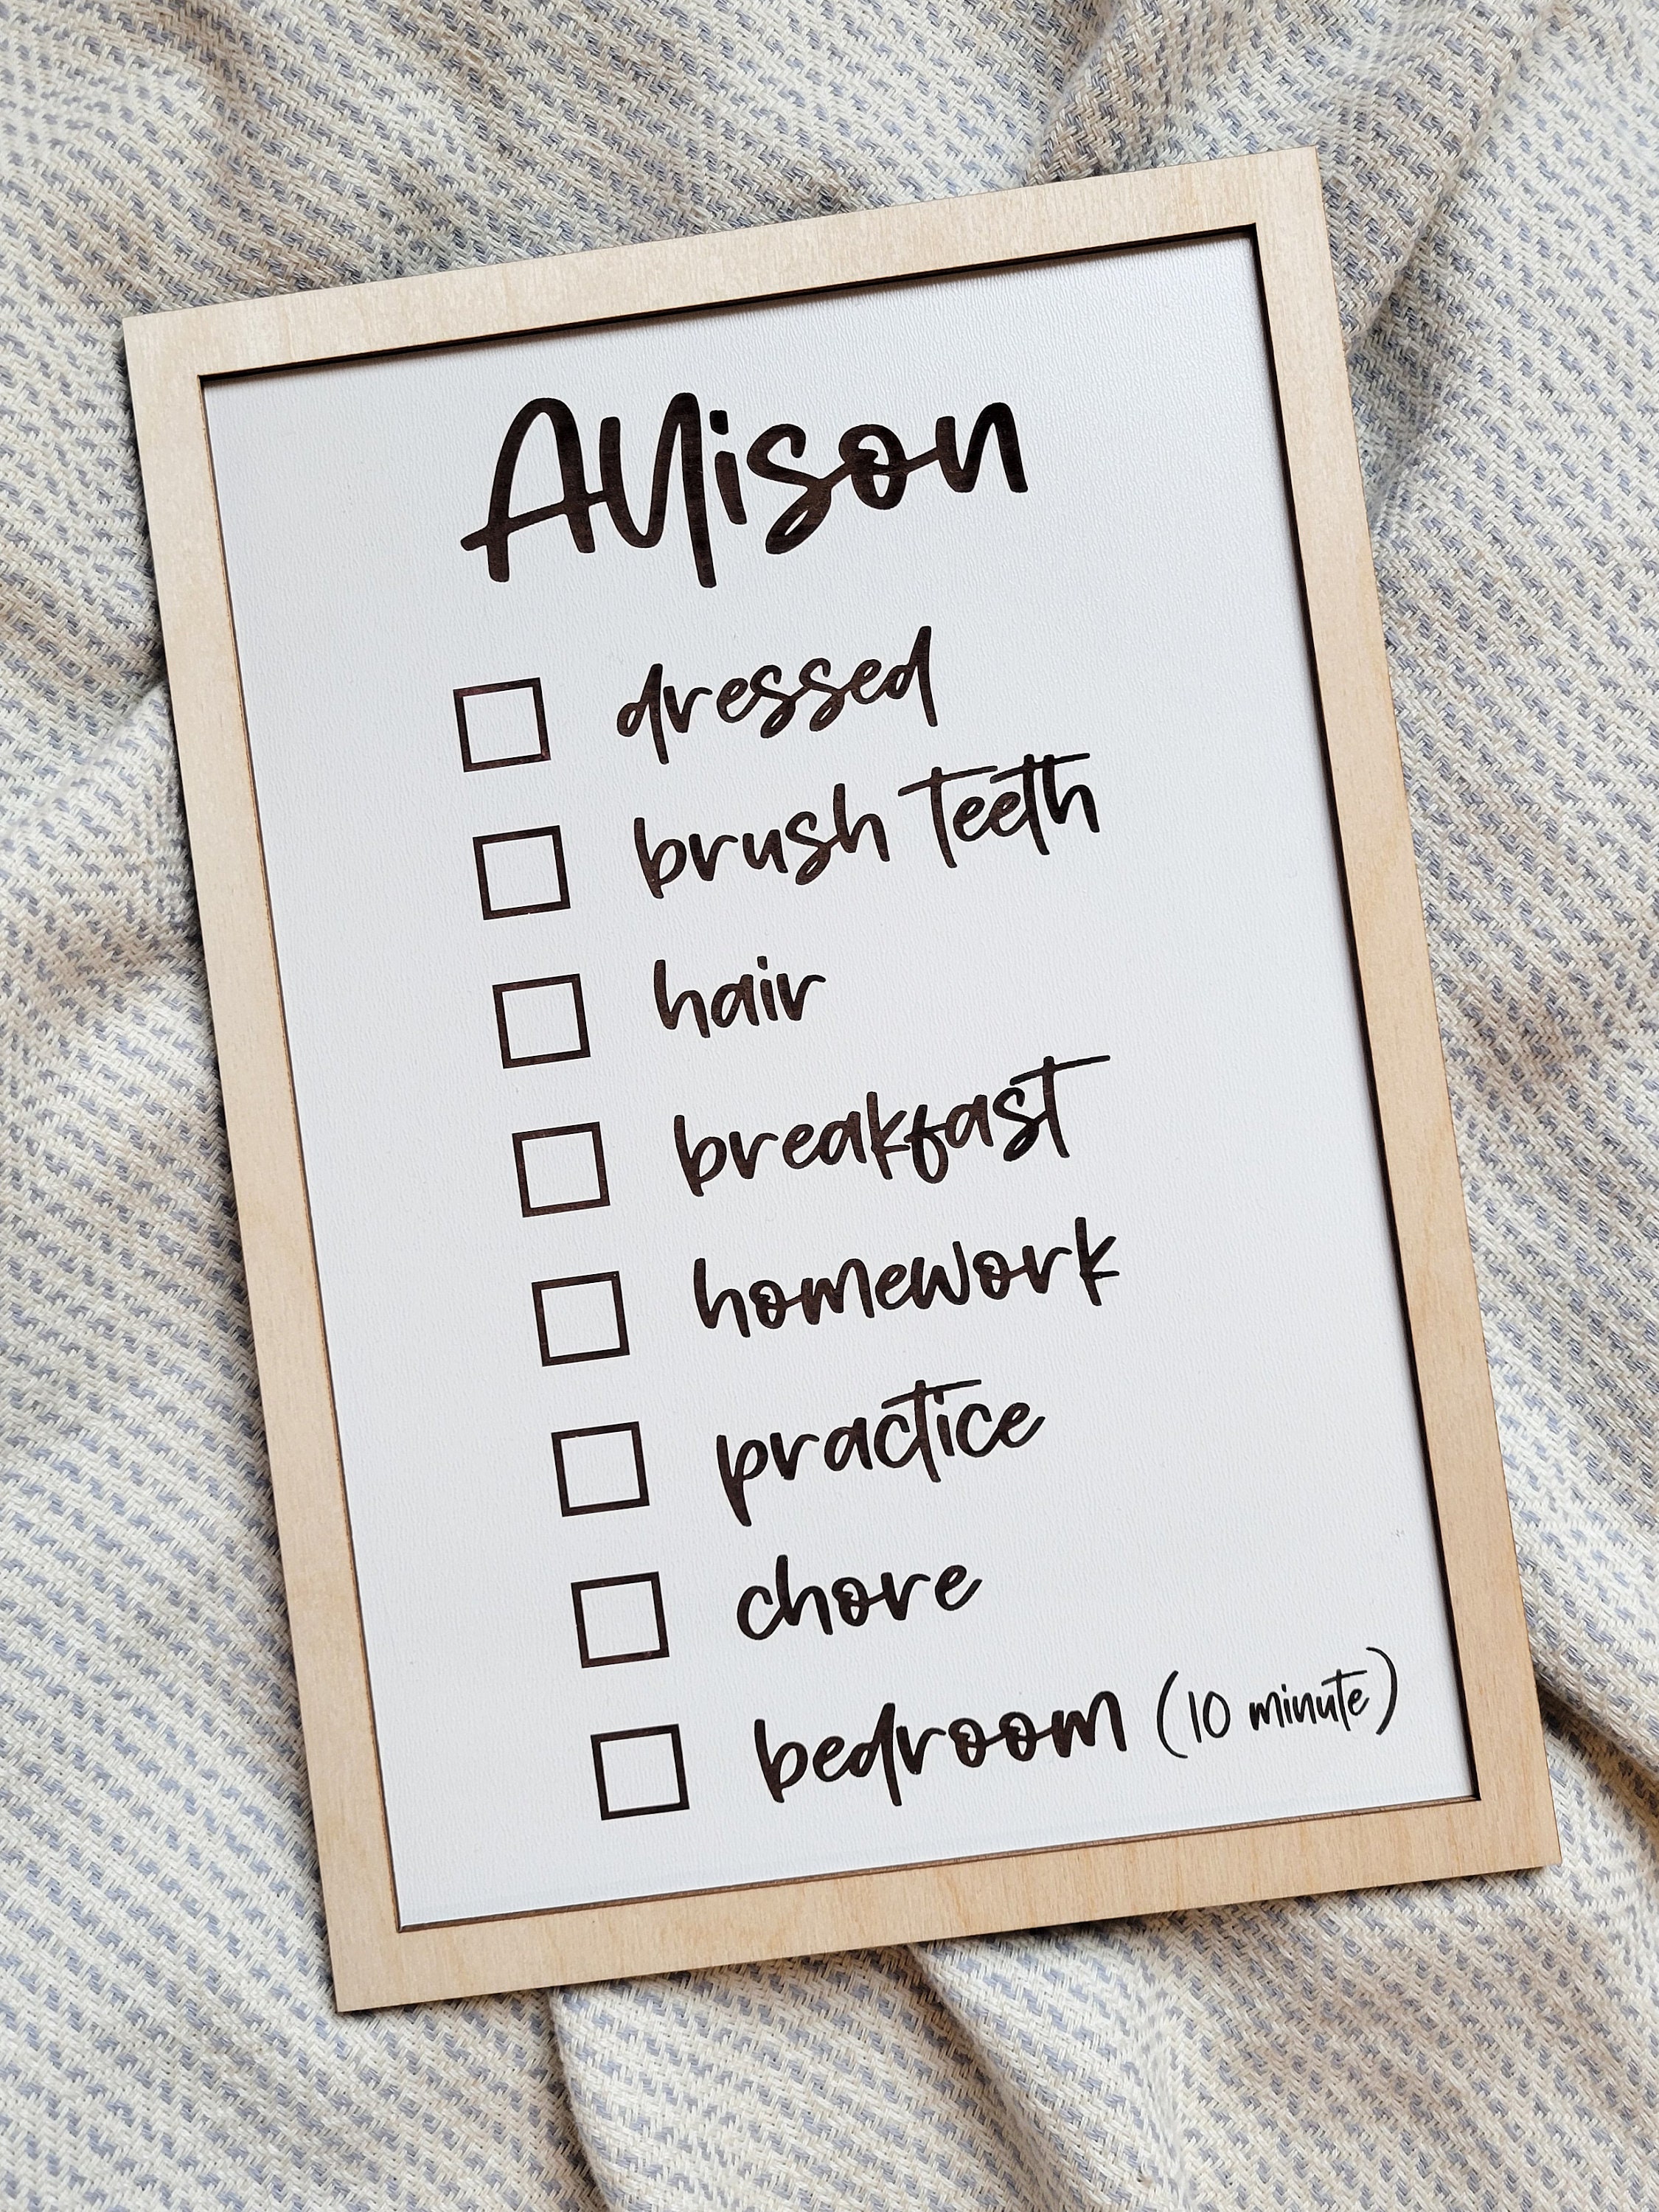 Allison
dressed
brush teeth
hair
breakfast
homework
practice
chore
bedroom (10 minute)